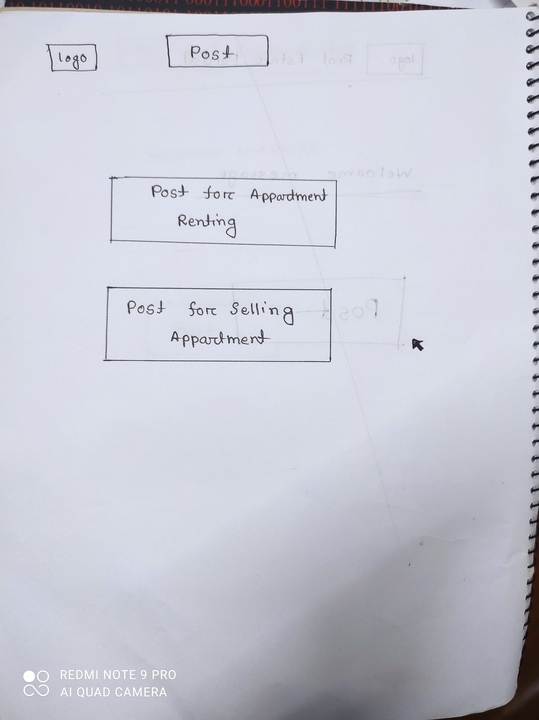 logo
Post
Post fore Appardment
Renting
Post fore Selling
Appartment
REDMI NOTE 9 PRO
AI QUAD CAMERA